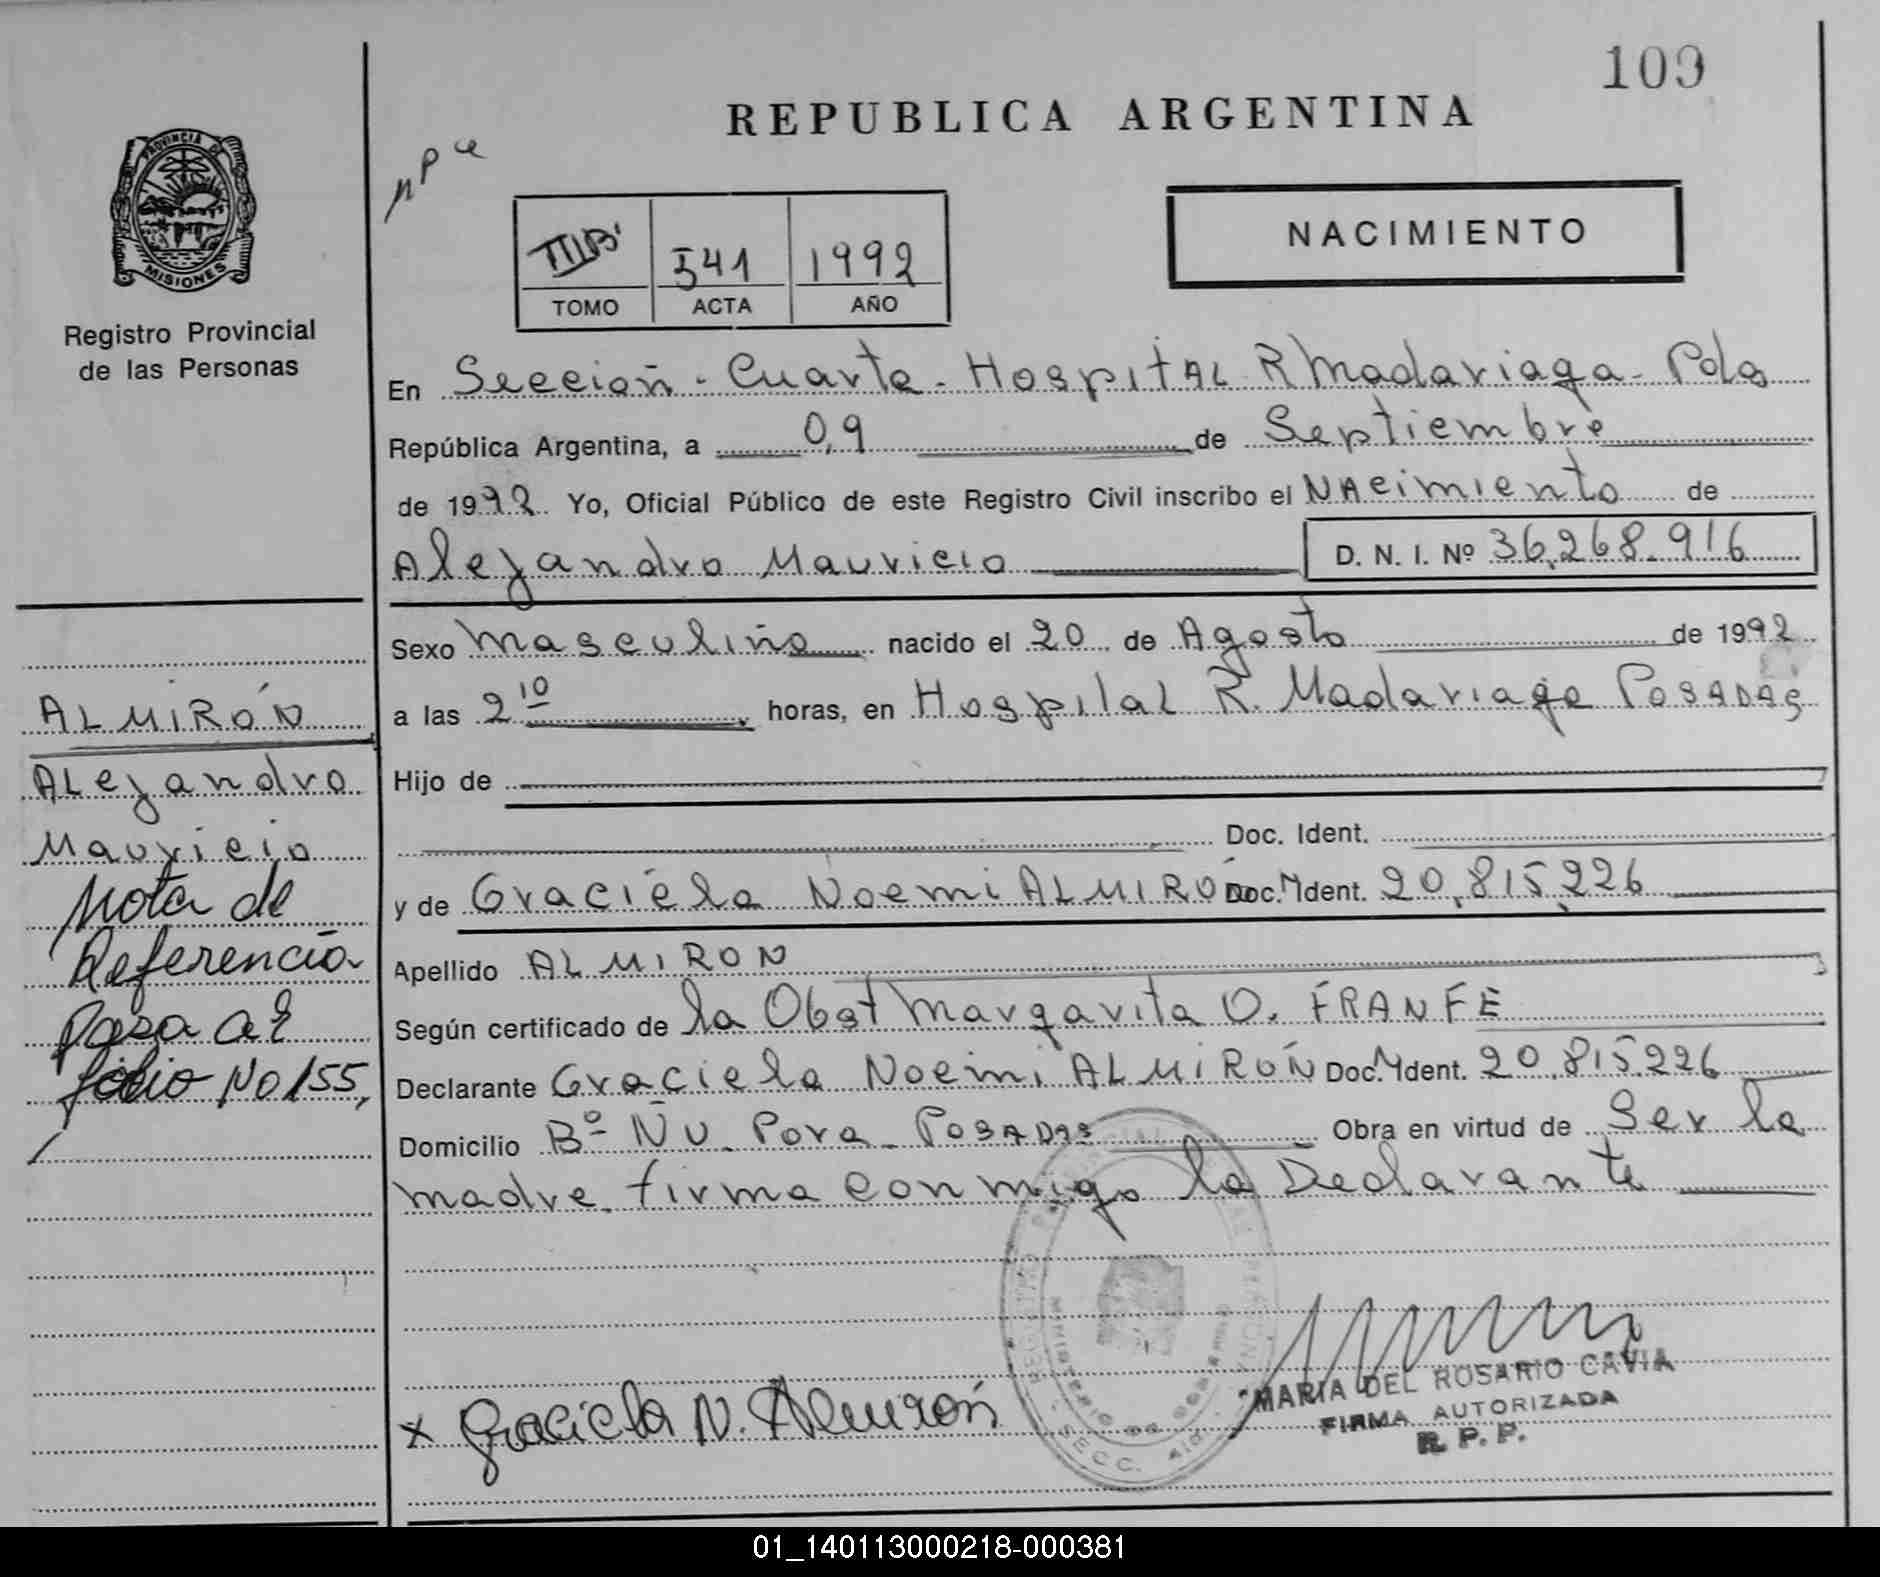 109
REPUBLICA ARGENTINA
PROVINCIA DE
MISIONES
Registro Provincial
de las Personas
NACIMIENTO
541 1992
TOMO ACTA AÑO
En Sección - Cuarta - Hospital R Madariaga - Pdas
República Argentina, a 09 de Septiembre
de 1992 Yo, Oficial Público de este Registro Civil inscribo el Nacimiento de
Alejandro Mauricio D. N. I. Nº 36.268.916
Sexo Masculino nacido el 20 de Agosto de 1992
a las 2 10 horas, en Hospital R. Madariaga POSADAS
Hijo de
Doc. Ident.
y de Graciela Noemi ALMIRÓN Doc. Ident. 20.815.226
Apellido ALMIRON
Según certificado de la Obst Margarita O. FRANFE
Declarante Graciela Noemi ALMIRÓN Doc. Ident. 20.815.226
Domicilio Bº Ñu Pora - POSADAS Obra en virtud de Ser la
madre. firma conmigo la Declarante
ALMIRÓN
Alejandro
Mauricio
Nota de
Referencia
Pasa al
folio No 155,
x Graciela N. Almirón
MARIA DEL ROSARIO CAVIA
FIRMA AUTORIZADA
R. P. P.
01_140113000218-000381